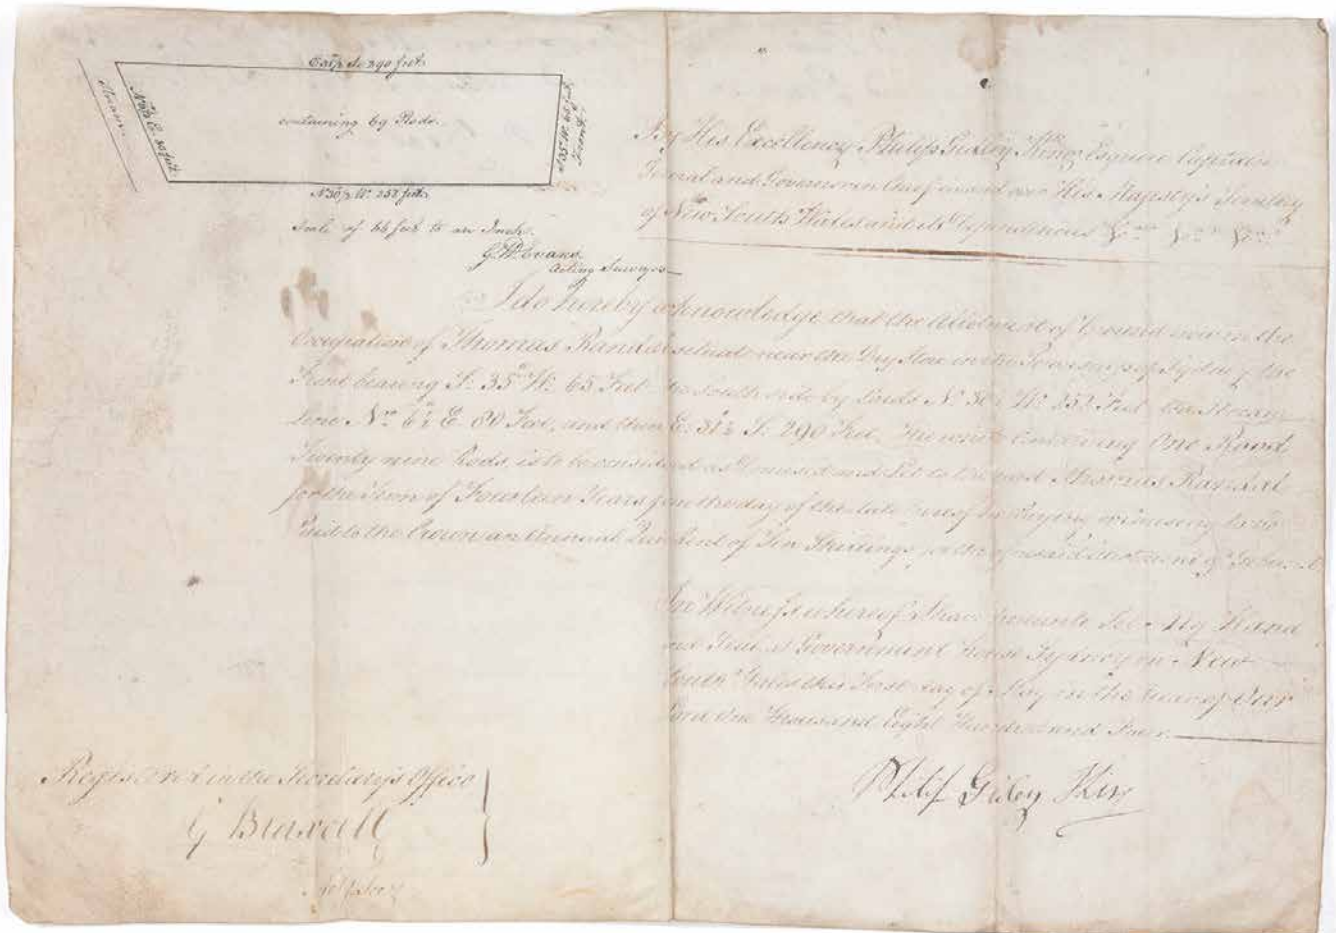 290 feet
Stream
E. 80 feet
containing 69 Rods.
W. 252 feet
Scale of 66 feet to an Inch.
G. W. Evans
Acting Surveyor
By His Excellency Philip Gidley King Esquire Captain
General and Governor in Chief in and over His Majesty's Territory
of New South Wales and its Dependencies &c &c &c
I do hereby acknowledge that the Allotment of Ground now in the
Occupation of Thomas Randal situate near the Dry Store in the Township of Sydney the
Front bearing S. 35° W. 65 Feet the South side by Lands W. 252 Feet the Stream
line No. 6½ E. 80 Feet, and then E. 31½ S. 290 Feet, the whole Containing One Rood
Twenty nine Rods, is to be considered as and Let to the said Thomas Randal
for the Term of Fourteen Years from the day of the date hereof he Paying or causing to be
Paid to the Crown an Annual Quit Rent of Ten Shillings for the aforesaid Allotment of Ground
In Witness whereof I have hereunto Set My Hand
and Seal at Government House Sydney in New
South Wales this First day of May in the Year of Our
Lord One Thousand Eight Hundred and Four.
Philip Gidley King
Registered in the Secretary's Office
G Blaxcell